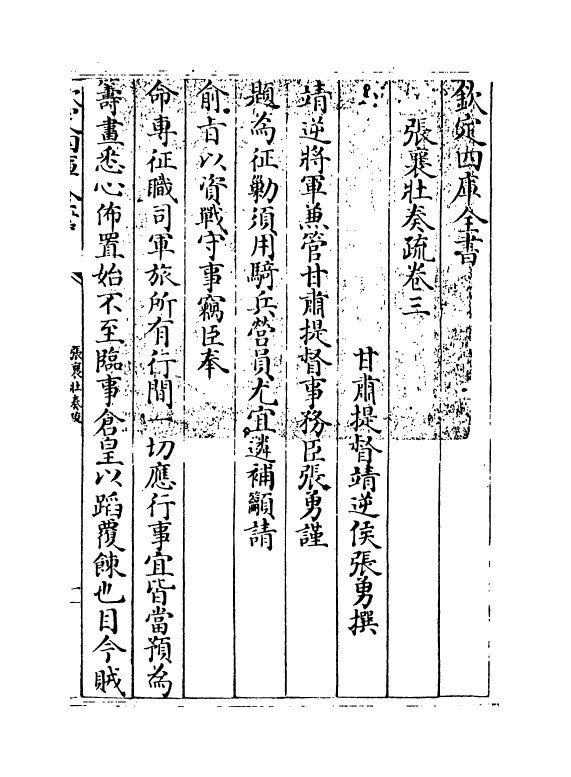 欽定四庫全書
張襄壯奏疏卷三
甘肅提督靖逆侯張勇撰
靖逆將軍兼管甘肅提督事務臣張勇謹
題為征勦須用騎兵營員尤宜遴補籲請
俞㫖以資戰守事竊臣奉
命專征職司軍旅所有行間一切應行事宜皆當預為
籌畫悉心佈置始不至臨事倉皇以蹈覆餗也目今賊
張襄壯奏疏